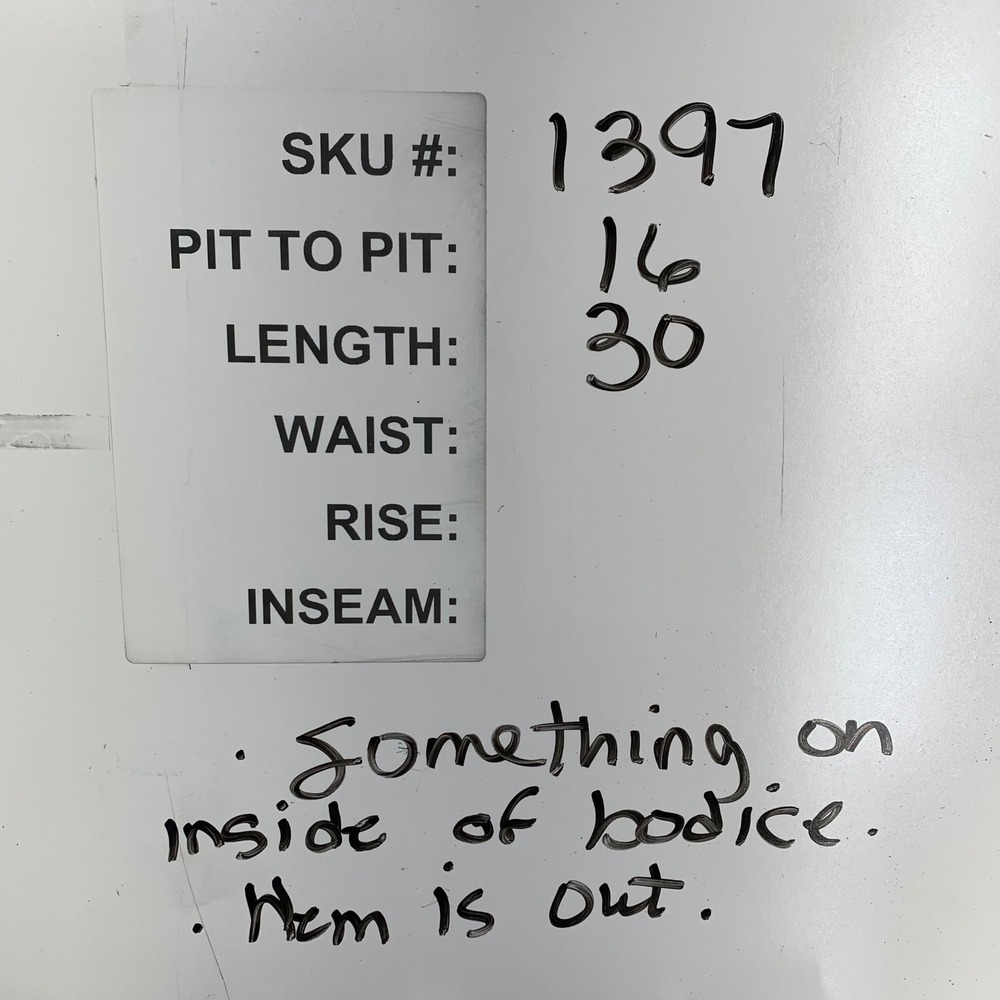 SKU #: 1397
PIT TO PIT: 16
LENGTH: 30
WAIST:
RISE:
INSEAM:
· Something on
inside of bodice.
· Hem is out.